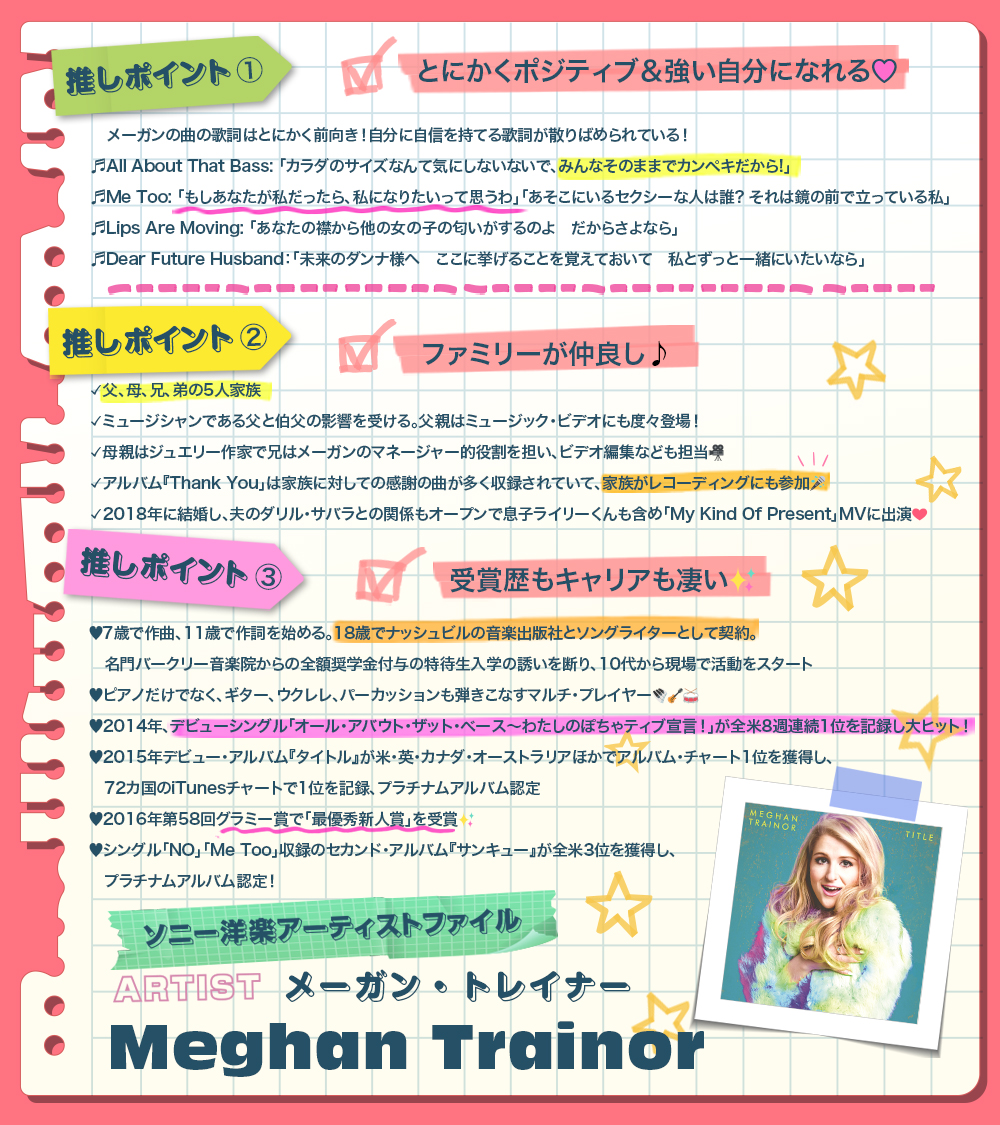 推しポイント①
とにかくポジティブ＆強い自分になれる♡
メーガンの曲の歌詞はとにかく前向き！自分に自信を持てる歌詞が散りばめられている！
♬All About That Bass:「カラダのサイズなんて気にしないないで、みんなそのままでカンペキだから!」
♬Me Too:「もしあなたが私だったら、私になりたいって思うわ」「あそこにいるセクシーな人は誰? それは鏡の前で立っている私」
♬Lips Are Moving:「あなたの襟から他の女の子の匂いがするのよ　だからさよなら」
♬Dear Future Husband:「未来のダンナ様へ　ここに挙げることを覚えておいて　私とずっと一緒にいたいなら」
推しポイント②
ファミリーが仲良し♪
✓父、母、兄、弟の5人家族
✓ミュージシャンである父と伯父の影響を受ける。父親はミュージック・ビデオにも度々登場！
✓母親はジュエリー作家で兄はメーガンのマネージャー的役割を担い、ビデオ編集なども担当🎥
✓アルバム『Thank You』は家族に対しての感謝の曲が多く収録されていて、家族がレコーディングにも参加🎤
✓2018年に結婚し、夫のダリル・サバラとの関係もオープンで息子ライリーくんも含め「My Kind Of Present」MVに出演❤
推しポイント③
受賞歴もキャリアも凄い✨
♥7歳で作曲、11歳で作詞を始める。18歳でナッシュビルの音楽出版社とソングライターとして契約。
名門バークリー音楽院からの全額奨学金付与の特待生入学の誘いを断り、10代から現場で活動をスタート
♥ピアノだけでなく、ギター、ウクレレ、パーカッションも弾きこなすマルチ・プレイヤー🎹🎸🥁
♥2014年、デビューシングル「オール・アバウト・ザット・ベース～わたしのぽちゃティブ宣言！」が全米8週連続1位を記録し大ヒット！
♥2015年デビュー・アルバム『タイトル』が米・英・カナダ・オーストラリアほかでアルバム・チャート1位を獲得し、
72カ国のiTunesチャートで1位を記録、プラチナムアルバム認定
♥2016年第58回グラミー賞で「最優秀新人賞」を受賞✨
♥シングル「NO」「Me Too」収録のセカンド・アルバム『サンキュー』が全米3位を獲得し、
プラチナムアルバム認定！
MEGHAN
TRAINOR
TITLE
ソニー洋楽アーティストファイル
ARTIST メーガン・トレイナー
Meghan Trainor